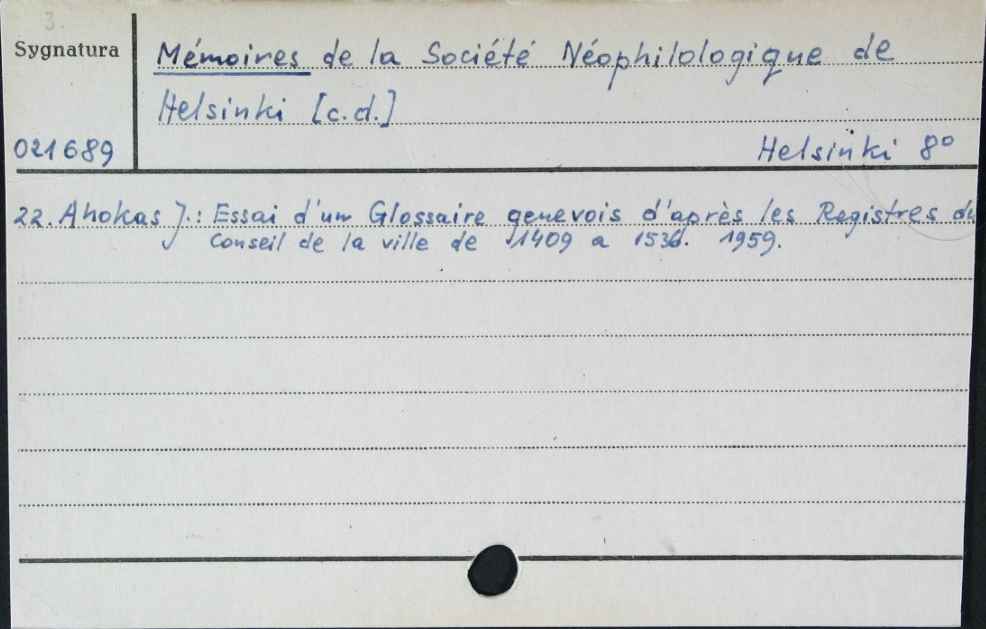 3.
Sygnatura
Mémoires de la Société Néophilologique de
Helsinki [c.d.]
021689
Helsinki 8°
22. Ahokas J.: Essai d'un Glossaire genevois d'après les Registres du
Conseil de la ville de 1409 a 1536. 1959.